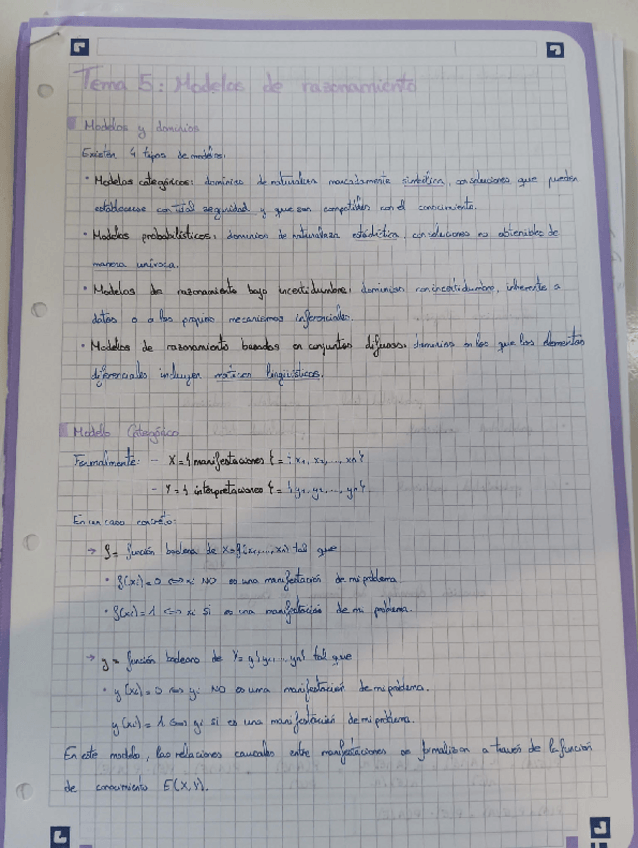 Tema 5: Modelos de razonamiento
Modelos y dominios
Existen 4 tipos de modelos:
• Modelos categóricos: dominios de naturaleza marcadamente simbólica, con soluciones que pueden
establecerse con total seguridad y que son compatibles con el conocimiento.
• Modelos probabilísticos: dominios de naturaleza estadística, con soluciones no obtenibles de
manera unívoca.
• Modelos de razonamiento bajo incertidumbre: dominios con incertidumbre, inherente a
datos o a los propios mecanismos inferenciales.
• Modelos de razonamiento basados en conjuntos difusos: dominios en los que los elementos
diferenciales incluyen matices lingüísticos.
Modelo Categórico
Formalmente: - X = {manifestaciones} = {x1, x2, ..., xn}
- Y = {interpretaciones} = {y1, y2, ..., yn}
En un caso concreto:
→ f = función booleana de X={x1,...,xn} tal que
• f(xi) = 0 ⟺ xi NO es una manifestación de mi problema
• f(xi) = 1 ⟺ xi si es una manifestación de mi problema.
→ g = función booleana de Y= {y1, ... yn} tal que
• g(xi) = 0 ⟺ yi NO es una manifestación de mi problema.
g(xi) = 1 ⟺ yi si es una manifestación de mi problema.
En este modelo, las relaciones causales entre manifestaciones se formalizan a través de la función
de conocimiento E(X,Y).